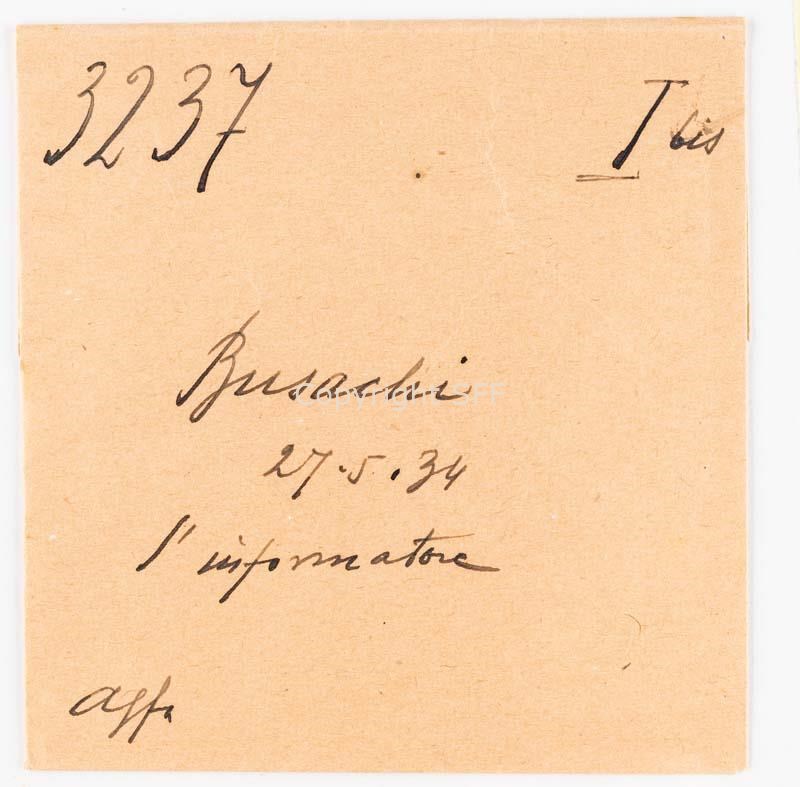 3237 I bis
Busachi
Copyright SFF
27.5.34
l'informatore
Agfa